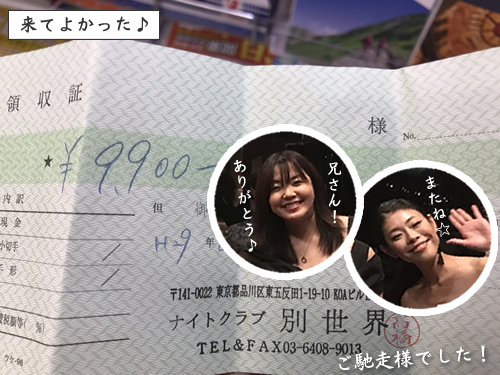 来てよかった♪
領収証
様
No.
★ ¥9,900-
内訳
但
現金
小切手
手形
H-9 年
兄さん！
ありがとう♪
またね☆
〒141-0022 東京都品川区東五反田1-19-10 KOAビル
ナイトクラブ 別世界
TEL&FAX03-6408-9013
税額等（ %）
ご馳走様でした！